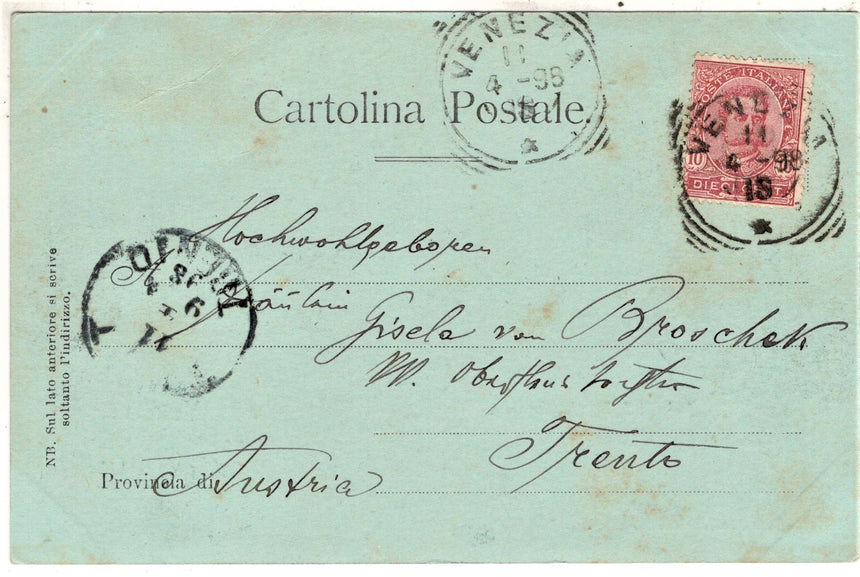 VENEZIA
11
4 -98
Cartolina Postale.
POSTE ITALIANE
10 10
VENEZIA
11
4 -98
18
TRENTO
98
Hochwohlgeboren
Fräulein
Gisela von Broschek
Trento
Provincia di Austria
NB. Sul lato anteriore si scrive
soltanto l'indirizzo.